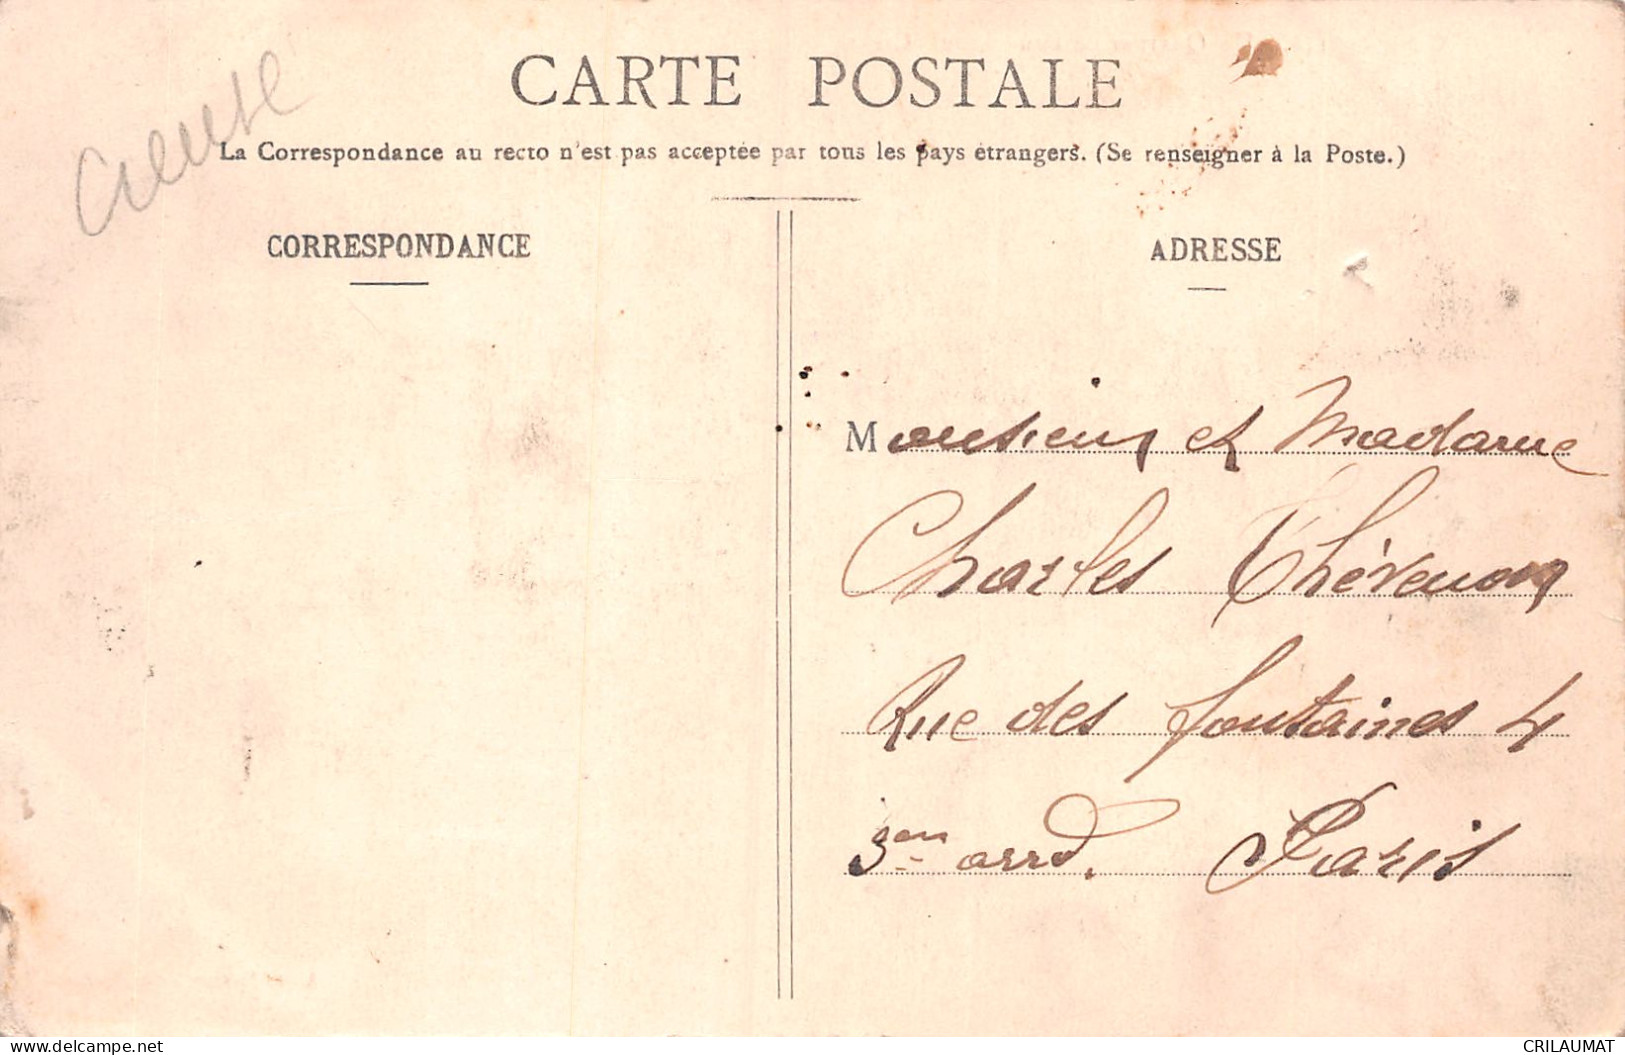 Creuse
CARTE POSTALE
La Correspondance au recto n'est pas acceptée par tous les pays étrangers. (Se renseigner à la Poste.)
CORRESPONDANCE
ADRESSE
Monsieur et Madame
Charles Thévenon
Rue des fontaines 4
3em arrd. Paris
delcampe.net
CRILAUMAT